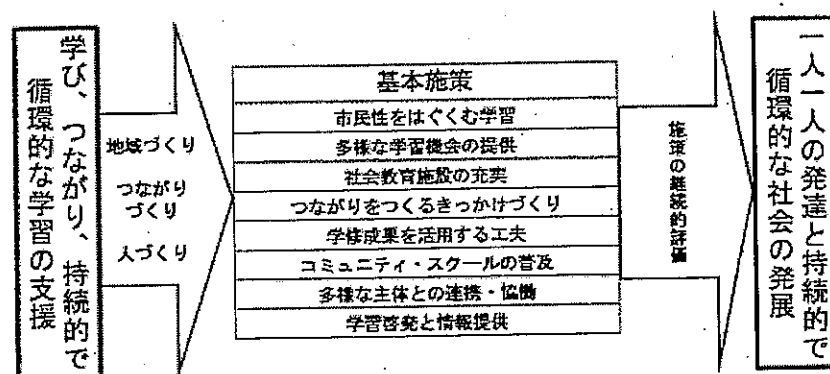 学び、つながり、持続的で
循環的な学習の支援
地域づくり
つながり
づくり
人づくり
基本施策
市民性をはぐくむ学習
多様な学習機会の提供
社会教育施設の充実
つながりをつくるきっかけづくり
学修成果を活用する工夫
コミュニティ・スクールの普及
多様な主体との連携・協働
学習啓発と情報提供
施策の継続的評価
一人一人の発達と持続的で
循環的な社会の発展